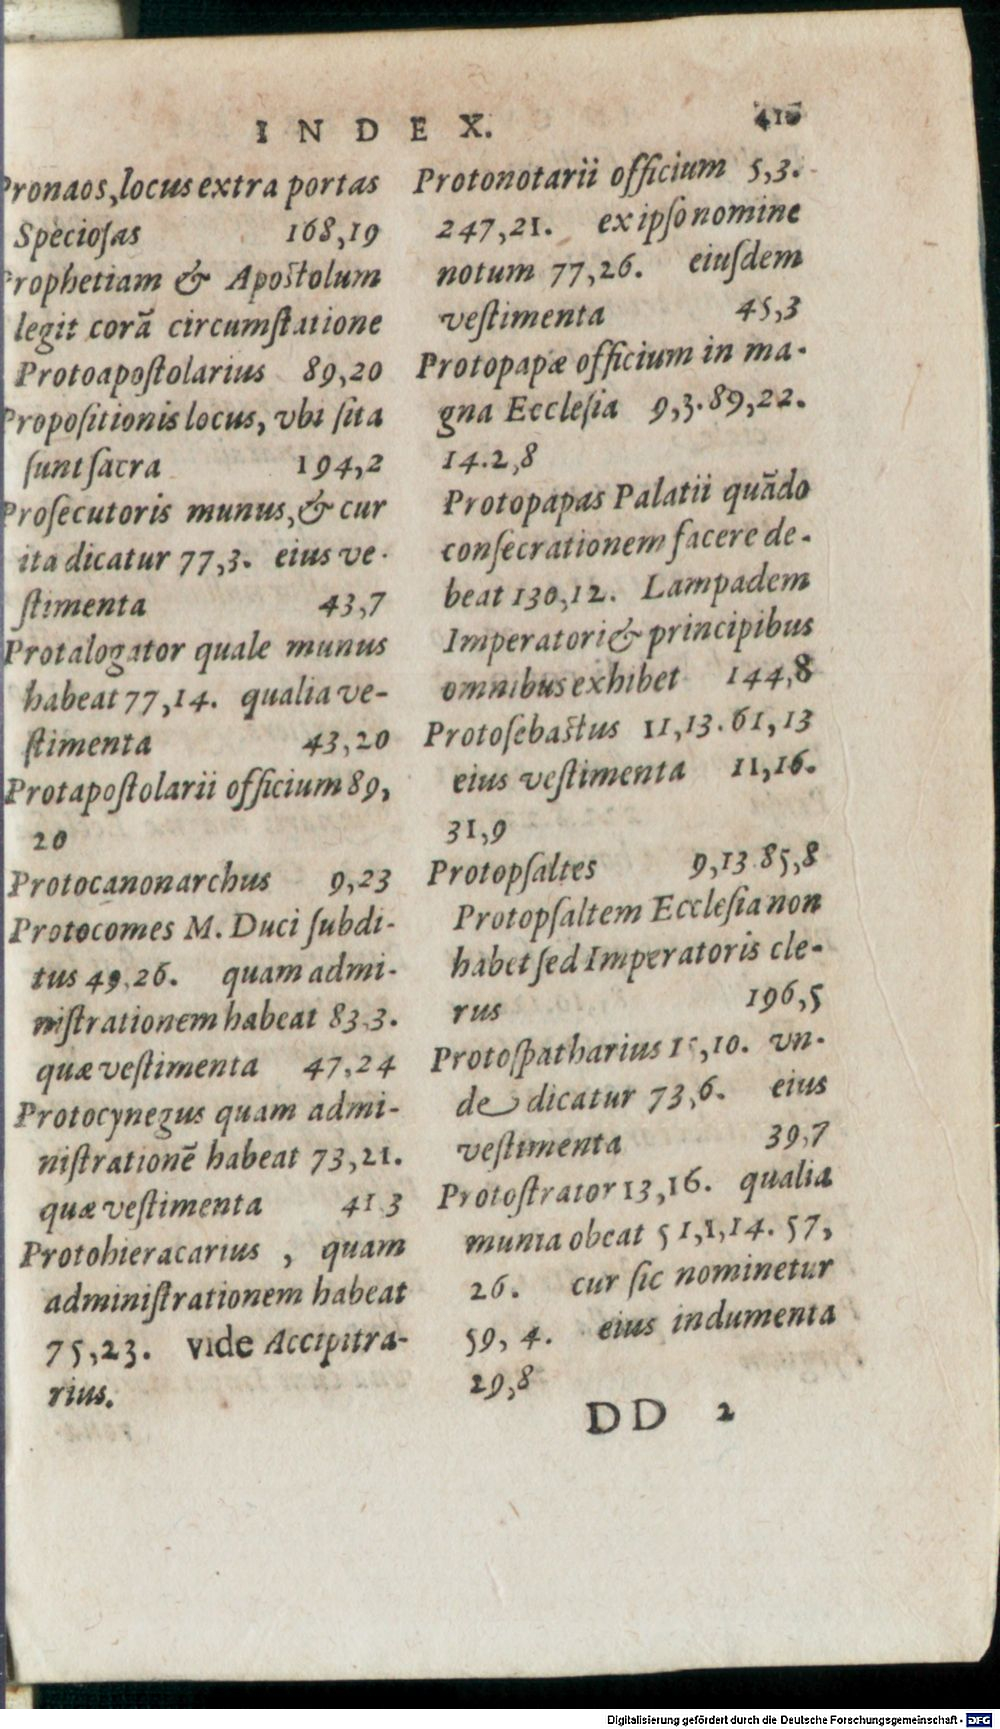 INDEX.
Pronaos, locus extra portas
Specioſas 168,19
Prophetiam & Apoſtolum
legit corā circumſtatione
Protoapoſtolarius 89,20
Propoſitionis locus, vbi ſita
ſunt ſacra 194,2
Proſecutoris munus, & cur
ita dicatur 77,3. eius ve-
ſtimenta 43,7
Protalogator quale munus
habeat 77,14. qualia ve-
ſtimenta 43,20
Protapoſtolarii officium 89,
20
Protocanonarchus 9,23
Protocomes M. Duci ſubdi-
tus 49,26. quam admi-
niſtrationem habeat 83,3.
quæ veſtimenta 47,24
Protocynegus quam admi-
niſtrationē habeat 73,21.
quæ veſtimenta 41,3
Protohieracarius, quam
adminiſtrationem habeat
75,23. vide Accipitra-
rius.
Protonotarii officium 5,3.
247,21. ex ipſo nomine
notum 77,26. eiuſdem
veſtimenta 45,3
Protopapæ officium in ma-
gna Eccleſia 9,3. 89,22.
14.2,8
Protopapas Palatii quādo
conſecrationem facere de-
beat 130,12. Lampadem
Imperatori & principibus
omnibus exhibet 144,8
Protoſebaſtus 11,13. 61,13
eius veſtimenta 11,16.
31,9
Protopſaltes 9,13 85,8
Protopſaltem Eccleſia non
habet ſed Imperatoris cle-
rus 196,5
Protoſpatharius ,10. vn-
de dicatur 73,6. eius
veſtimenta 39,7
Protoſtrator 13,16. qualia
munia obeat 51,1,14. 57,
26. cur ſic nominetur
59, 4. eius indumenta
29,8
DD 2
Digitalisierung gefördert durch die Deutsche Forschungsgemeinschaft - DFG